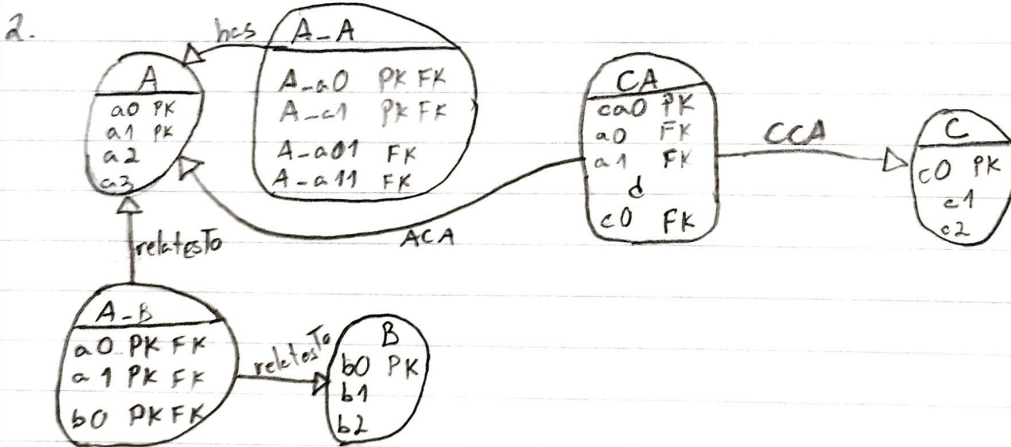 2.
has
A_A
A_a0 PK FK
A_a1 PK FK
A_a01 FK
A_a11 FK
A
a0 PK
a1 PK
a2
a3
CA
ca0 PK
a0 FK
a1 FK
d
c0 FK
CCA
C
c0 PK
c1
c2
ACA
relatesTo
A_B
a0 PK FK
a1 PK FK
b0 PK FK
relatesTo
B
b0 PK
b1
b2